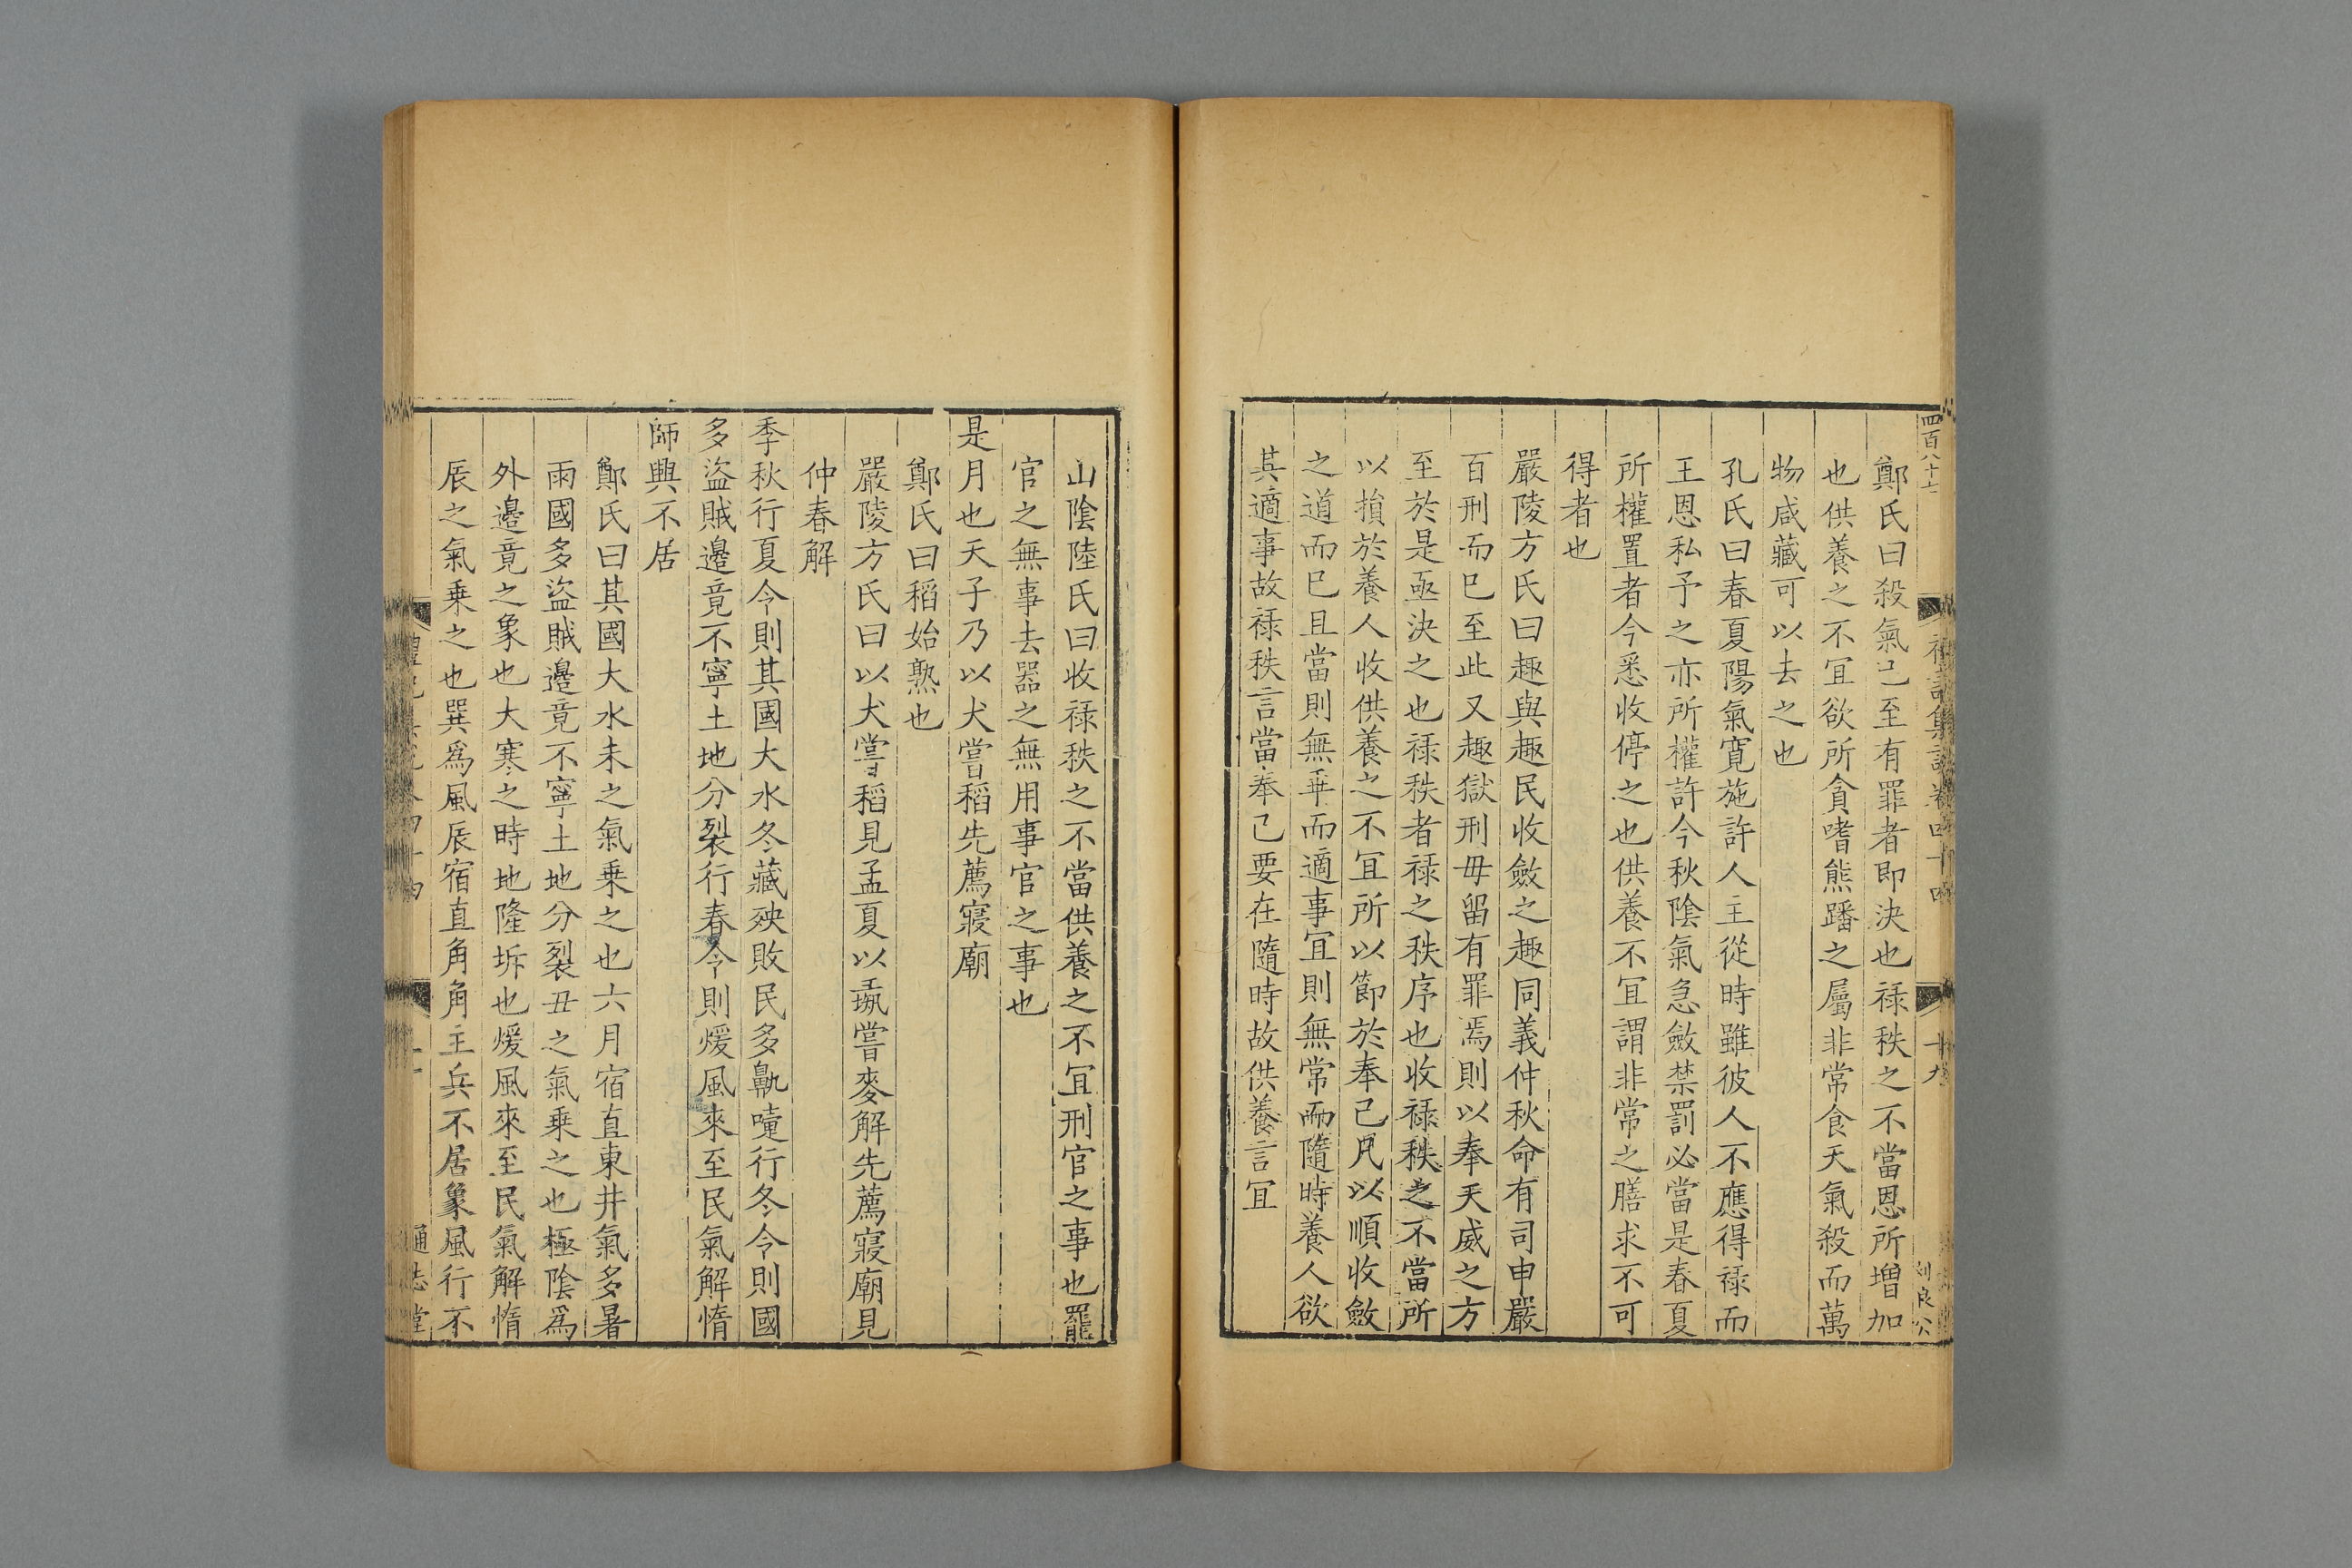 四百八十七
禮記集說卷四十四
十九
鄭氏曰殺氣已至有罪者即決也祿秩之不當恩所增加
也供養之不宜欲所貪嗜熊蹯之屬非常食天氣殺而萬
物咸藏可以去之也
孔氏曰春夏陽氣寬施許人主從時雖彼人不應得祿而
王恩私予之亦所權許今秋陰氣急斂禁罰必當是春夏
所權置者今悉收停之也供養不宜謂非常之膳求不可
得者也
嚴陵方氏曰趣與趣民收斂之趣同義仲秋命有司申嚴
百刑而已至此又趣獄刑毋留有罪焉則以奉天威之方
至於是亟決之也祿秩者祿之秩序也收祿秩之不當所
以損於養人收供養之不宜所以節於奉己凡以順收斂
之道而已且當則無乖而適事宜則無常而隨時養人欲
其適事故祿秩言當奉己要在隨時故供養言宜
山陰陸氏曰收祿秩之不當供養之不宜刑官之事也罷
官之無事去器之無用事官之事也
是月也天子乃以犬嘗稻先薦寢廟
鄭氏曰稻始熟也
嚴陵方氏曰以犬嘗稻見孟夏以彘嘗麥解先薦寢廟見
仲春解
季秋行夏令則其國大水冬藏殃敗民多鼽嚏行冬令則國
多盜賊邊竟不寧土地分裂行春令則煖風來至民氣解惰
師興不居
鄭氏曰其國大水未之氣乘之也六月宿直東井氣多暑
雨國多盜賊邊竟不寧土地分裂丑之氣乘之也極陰為
外邊竟之象也大寒之時地隆坼也煖風來至民氣解惰
辰之氣乘之也巽為風辰宿直角角主兵不居象風行不
通志堂